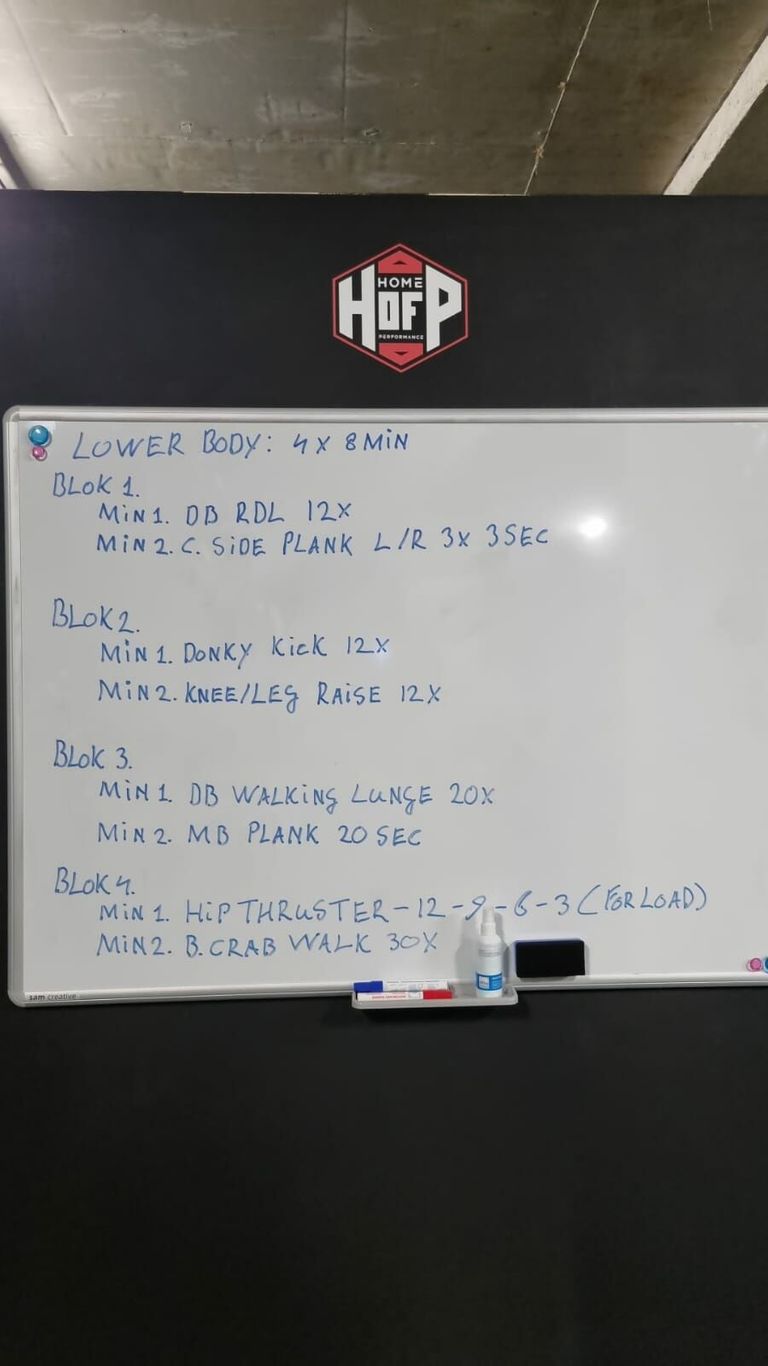 HOME
HOFP
PERFORMANCE
LOWER BODY: 4 X 8 MIN
BLOK 1.
MIN 1. DB RDL 12X
MIN 2. C. SIDE PLANK L/R 3X 3SEC
BLOK 2.
MIN 1. DONKY KICK 12X
MIN 2. KNEE/LEG RAISE 12X
BLOK 3.
MIN 1. DB WALKING LUNGE 20X
MIN 2. MB PLANK 20 SEC
BLOK 4.
MIN 1. HIP THRUSTER - 12 - 9 - 6 - 3 (FOR LOAD)
MIN 2. B. CRAB WALK 30X
sam creative